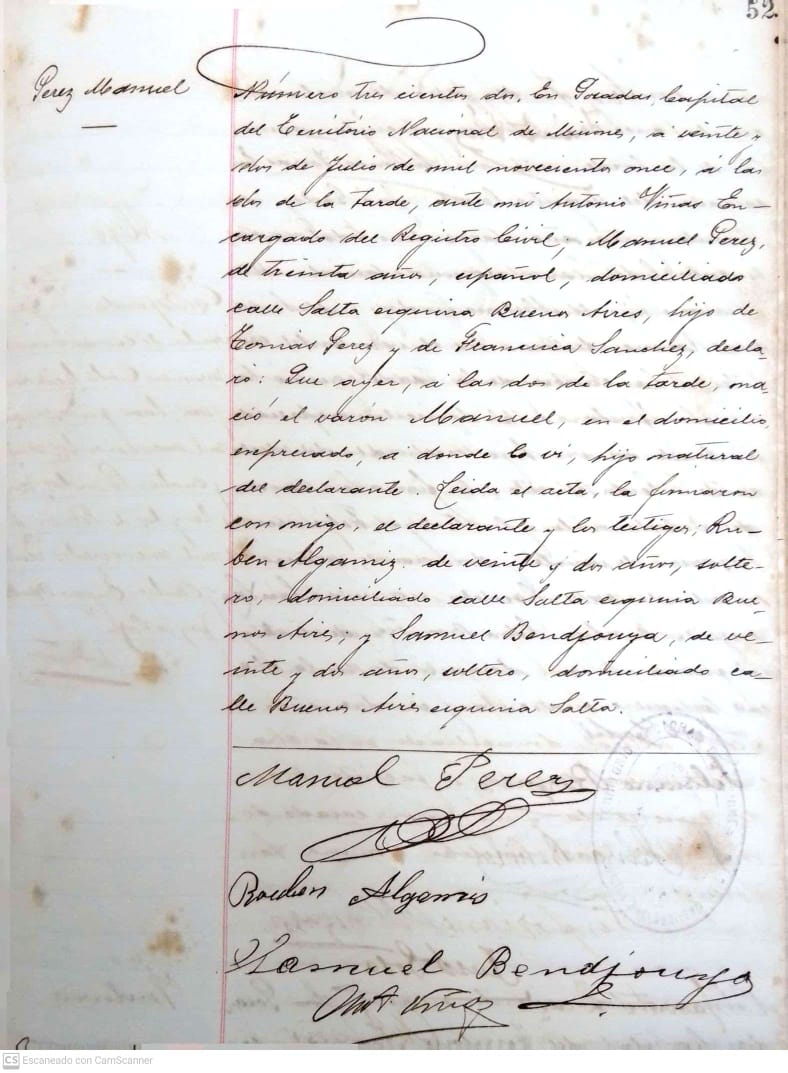 52
Perez Manuel
Número tres cientos dos. En Posadas, Capital
del Territorio Nacional de Misiones, á veinte y
dos de Julio de mil novecientos once, á las
dos de la tarde, ante mi Antonio Viñas En-
cargado del Registro Civil; Manuel Perez,
de treinta años, español, domiciliado
calle Salta esquina Buenos Aires, hijo de
Tomás Perez y de Francisca Sanchez, decla-
ró: Que ayer, á las dos de la tarde, na-
ció el varón Manuel, en el domicilio
expresado, á donde lo vi, hijo natural
del declarante. Leida el acta, la firmaron
con migo, el declarante y los testigos; Ru-
ben Algamiz. de veinte y dos años, solte-
ro, domiciliado calle Salta esquina Bue-
nos Aires; y Samuel Bendjouya, de ve-
inte y dos años, soltero, domiciliado ca-
lle Buenos Aires esquina Salta.
Manuel Perez
Algamis
Samuel Bendjouya
Ant Viñas
CS Escaneado con CamScanner